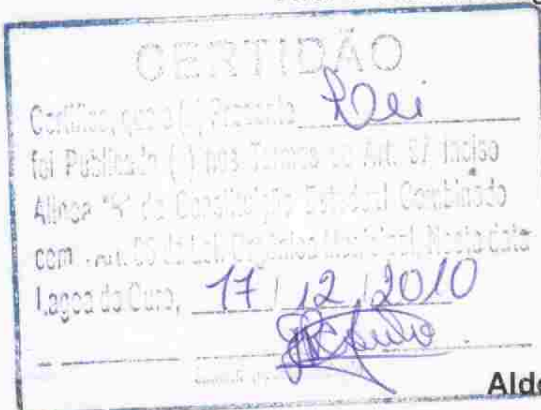 CERTIDÃO
Certifico, que o ( ) Presente Lei
foi Publicado ( ) nos Termos do Art. 97 Inciso
Alínea da Constituição Estadual Combinado
com Art. da Lei Orgânica Municipal, Nesta data
Lagoa do Ouro, 17 / 12 / 2010
Alde